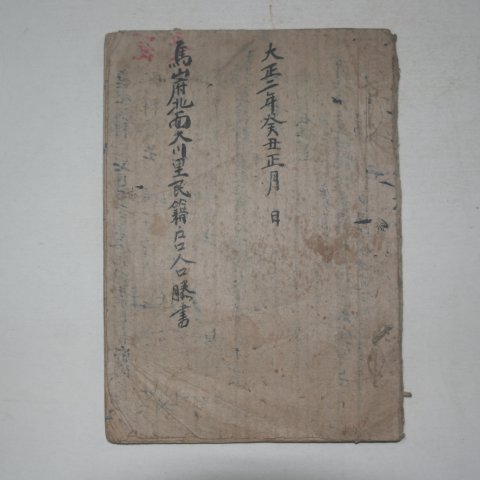 大正二年癸丑正月 日
馬山府北面大川里民籍戶口人口謄書